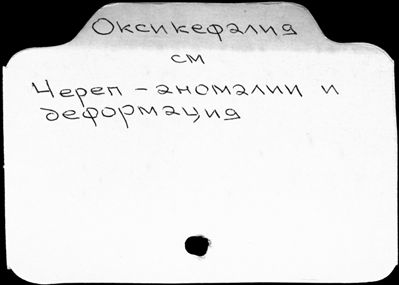 Оксикефалия
см
Череп - аномалии и
деформация